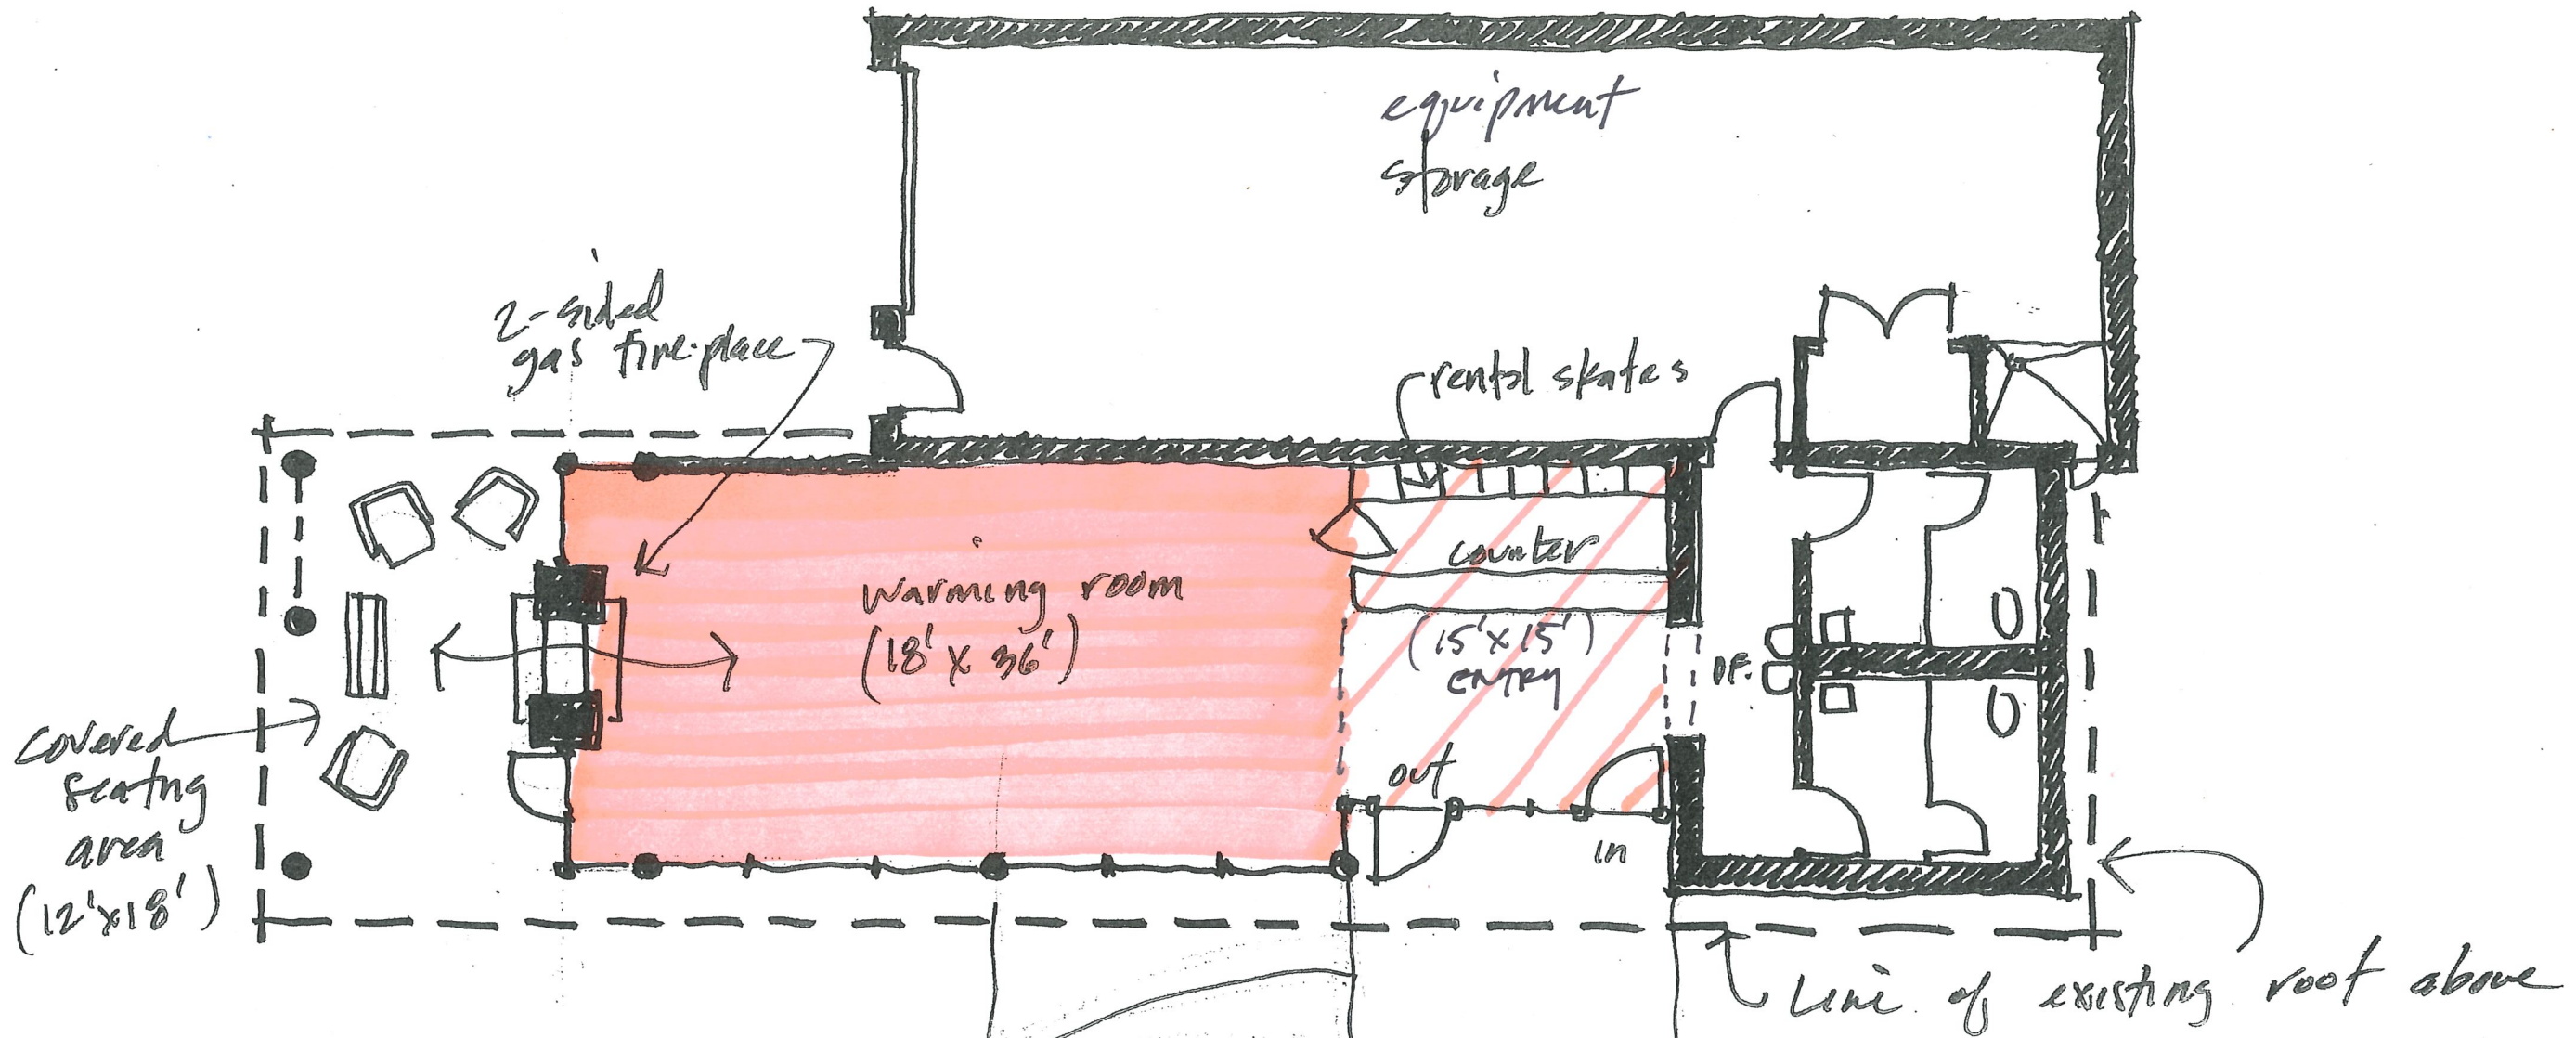 equipment
storage
2-sided
gas fire-place
rental skates
counter
warming room
(18' x 36')
(15' x 15')
ENTRY
D.F.
out
in
covered
seatng
area
(12'x18')
Line of existing roof above